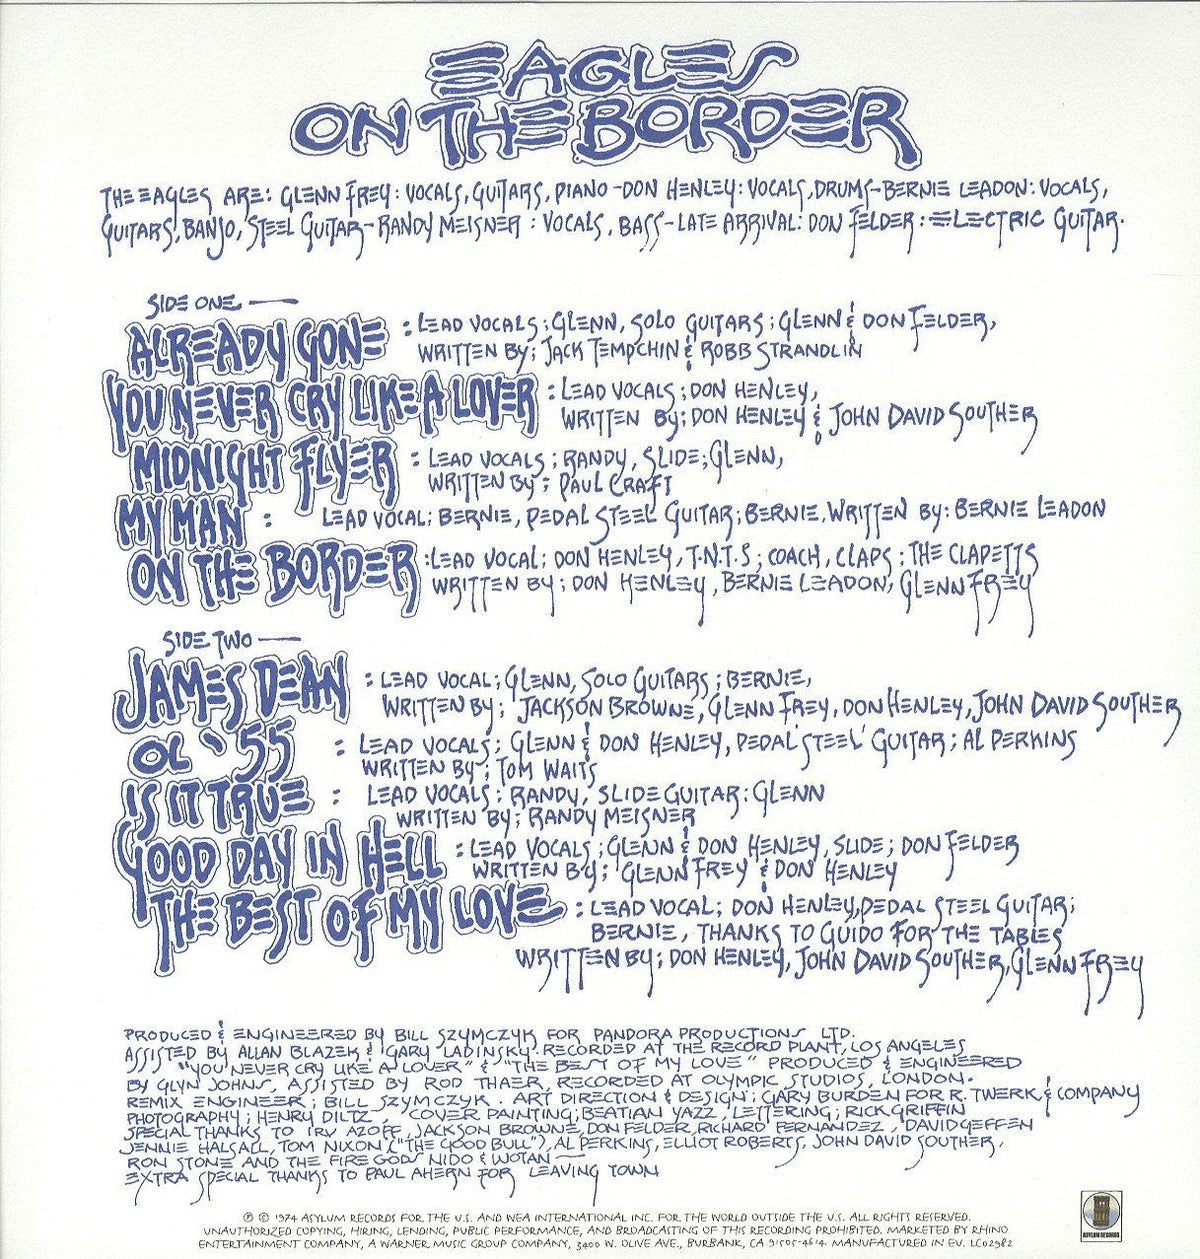 EAGLES
ON THE BORDER
THE EAGLES ARE: GLENN FREY: VOCALS, GUITARS, PIANO-DON HENLEY: VOCALS, DRUMS-BERNIE LEADON: VOCALS,
GUITARS, BANJO, STEEL GUITAR-RANDY MEISNER: VOCALS, BASS-LATE ARRIVAL: DON FELDER: ELECTRIC GUITAR.
SIDE ONE —
ALREADY GONE : LEAD VOCALS; GLENN, SOLO GUITARS; GLENN & DON FELDER,
WRITTEN BY; JACK TEMPCHIN & ROBB STRANDLIN
YOU NEVER CRY LIKE A LOVER : LEAD VOCALS; DON HENLEY,
WRITTEN BY; DON HENLEY & JOHN DAVID SOUTHER
MIDNIGHT FLYER : LEAD VOCALS; RANDY, SLIDE; GLENN,
WRITTEN BY; PAUL CRAFT
MY MAN : LEAD VOCAL; BERNIE, PEDAL STEEL GUITAR; BERNIE, WRITTEN BY: BERNIE LEADON
ON THE BORDER : LEAD VOCAL; DON HENLEY, T.N.T.S; COACH, CLAPS: THE CLAPETTS
WRITTEN BY; DON HENLEY, BERNIE LEADON, GLENN FREY
SIDE TWO —
JAMES DEAN : LEAD VOCAL; GLENN, SOLO GUITARS; BERNIE,
WRITTEN BY; JACKSON BROWNE, GLENN FREY, DON HENLEY, JOHN DAVID SOUTHER
OL '55 : LEAD VOCALS; GLENN & DON HENLEY, PEDAL STEEL GUITAR; AL PERKINS
WRITTEN BY; TOM WAITS
IS IT TRUE : LEAD VOCALS; RANDY, SLIDE GUITAR: GLENN
WRITTEN BY; RANDY MEISNER
GOOD DAY IN HELL : LEAD VOCALS; GLENN & DON HENLEY, SLIDE; DON FELDER
WRITTEN BY; GLENN FREY & DON HENLEY
THE BEST OF MY LOVE : LEAD VOCAL; DON HENLEY, PEDAL STEEL GUITAR;
BERNIE, THANKS TO GUIDO FOR THE TABLES
WRITTEN BY; DON HENLEY, JOHN DAVID SOUTHER, GLENN FREY
PRODUCED & ENGINEERED BY BILL SZYMCZYK FOR PANDORA PRODUCTIONS LTD.
ASSISTED BY ALLAN BLAZEK & GARY LADINSKY. RECORDED AT THE RECORD PLANT, LOS ANGELES
"YOU NEVER CRY LIKE A LOVER" & "THE BEST OF MY LOVE" PRODUCED & ENGINEERED
BY GLYN JOHNS, ASSISTED BY ROD THAER, RECORDED AT OLYMPIC STUDIOS, LONDON.
REMIX ENGINEER; BILL SZYMCZYK. ART DIRECTION & DESIGN; GARY BURDEN FOR R. TWERK & COMPANY
PHOTOGRAPHY; HENRY DILTZ, COVER PAINTING; BEATIAN YAZZ, LETTERING; RICK GRIFFIN
SPECIAL THANKS TO IRV AZOFF, JACKSON BROWNE, DON FELDER, RICHARD FERNANDEZ, DAVID GEFFEN
JENNIE HALSALL, TOM NIXON ("THE GOOD BULL"), AL PERKINS, ELLIOT ROBERTS, JOHN DAVID SOUTHER,
RON STONE AND THE FIRE GODS NIDO & WOTAN—
EXTRA SPECIAL THANKS TO PAUL AHERN FOR LEAVING TOWN
℗ © 1974 ASYLUM RECORDS FOR THE U.S. AND WEA INTERNATIONAL INC. FOR THE WORLD OUTSIDE THE U.S. ALL RIGHTS RESERVED.
UNAUTHORIZED COPYING, HIRING, LENDING, PUBLIC PERFORMANCE, AND BROADCASTING OF THIS RECORDING PROHIBITED. MARKETED BY RHINO
ENTERTAINMENT COMPANY, A WARNER MUSIC GROUP COMPANY, 3400 W. OLIVE AVE., BURBANK, CA 91505-4614. MANUFACTURED IN EU. LC02982
ASYLUM RECORDS